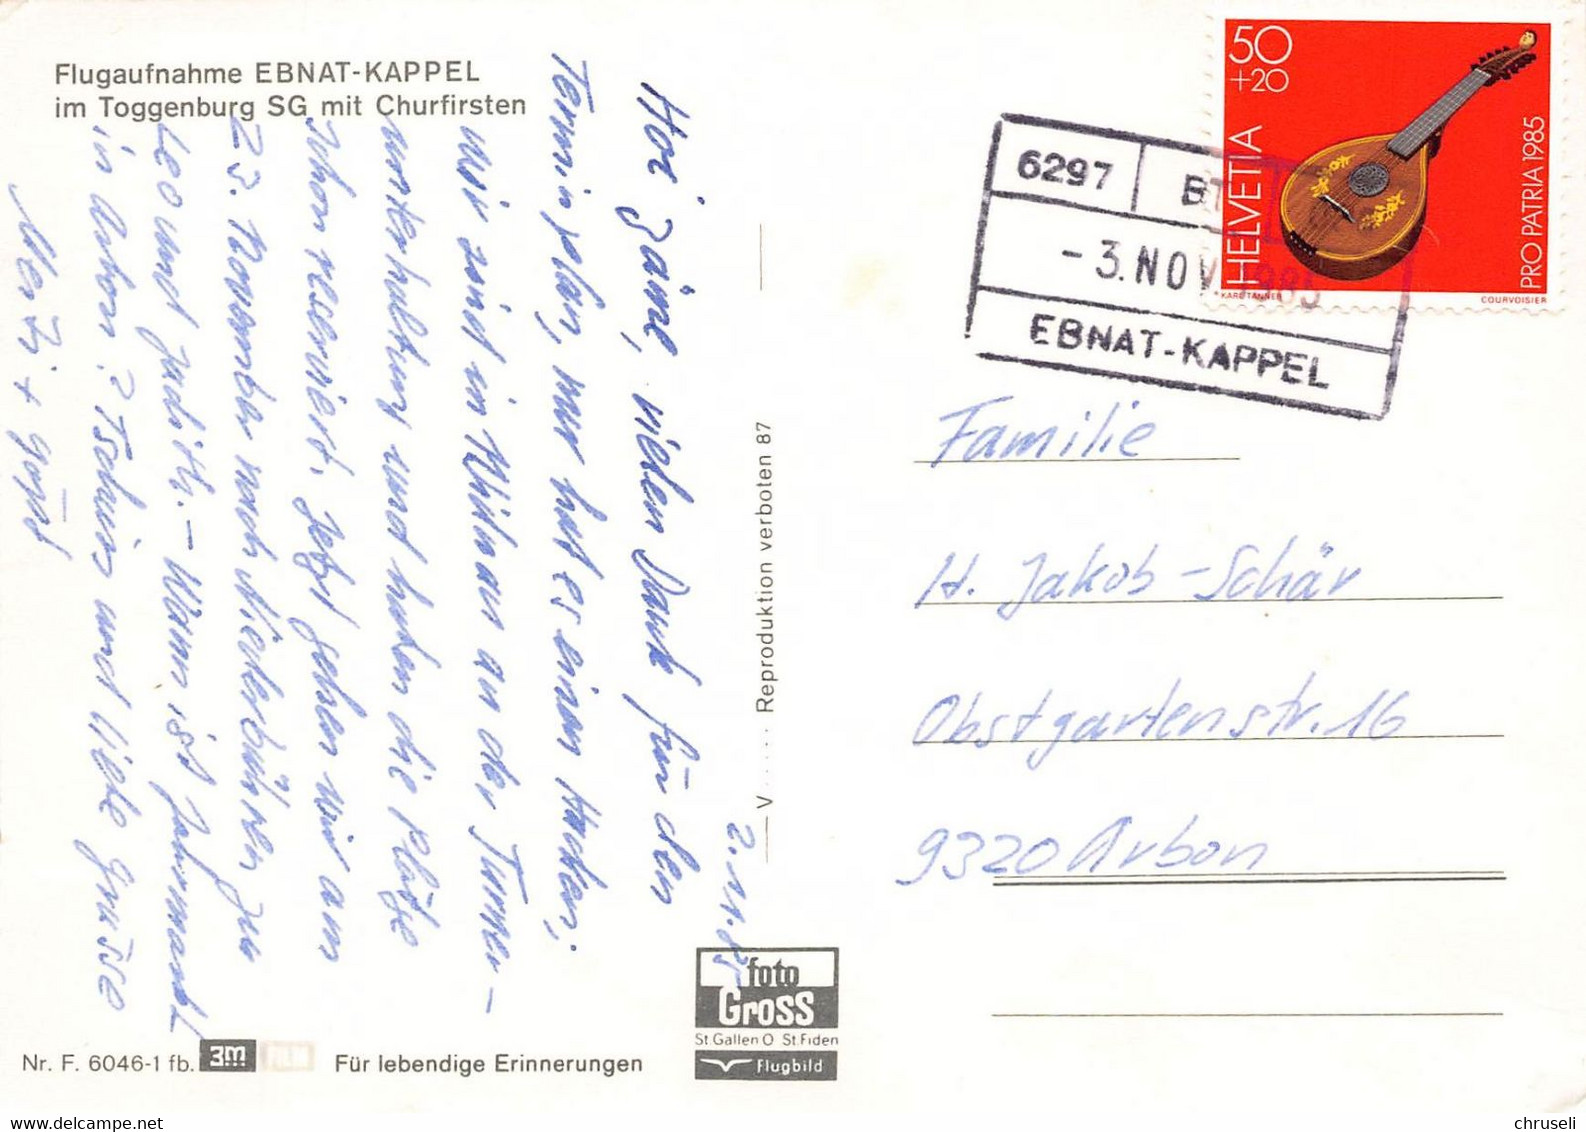 Flugaufnahme EBNAT-KAPPEL
im Toggenburg SG mit Churfirsten
2.11.85
Hoi Zäme, vielen Dank für den
Terminplan, nur hat es einen Hacken;
wir sind in an der Turner-
unterhaltung und haben die Plätze
schon reserviert. Jetzt gehen wir am
23. November nach Niederbüren zu
Leo und Judith. – Wann ist Jahrmarkt
in Arbon? Tschüss und liebe Grüsse
+
V ..... Reproduktion verboten 87
50
+20
HELVETIA
PRO PATRIA 1985
KARL TANNER
COURVOISIER
6297 BT
-3. NOV. 1985
EBNAT-KAPPEL
Familie
H. Jakob-Schär
Obstgartenstr. 16
9320 Arbon
foto
Gross
St.Gallen O St.Fiden
Flugbild
Nr. F. 6046-1 fb. 3m FILM Für lebendige Erinnerungen
chruseli